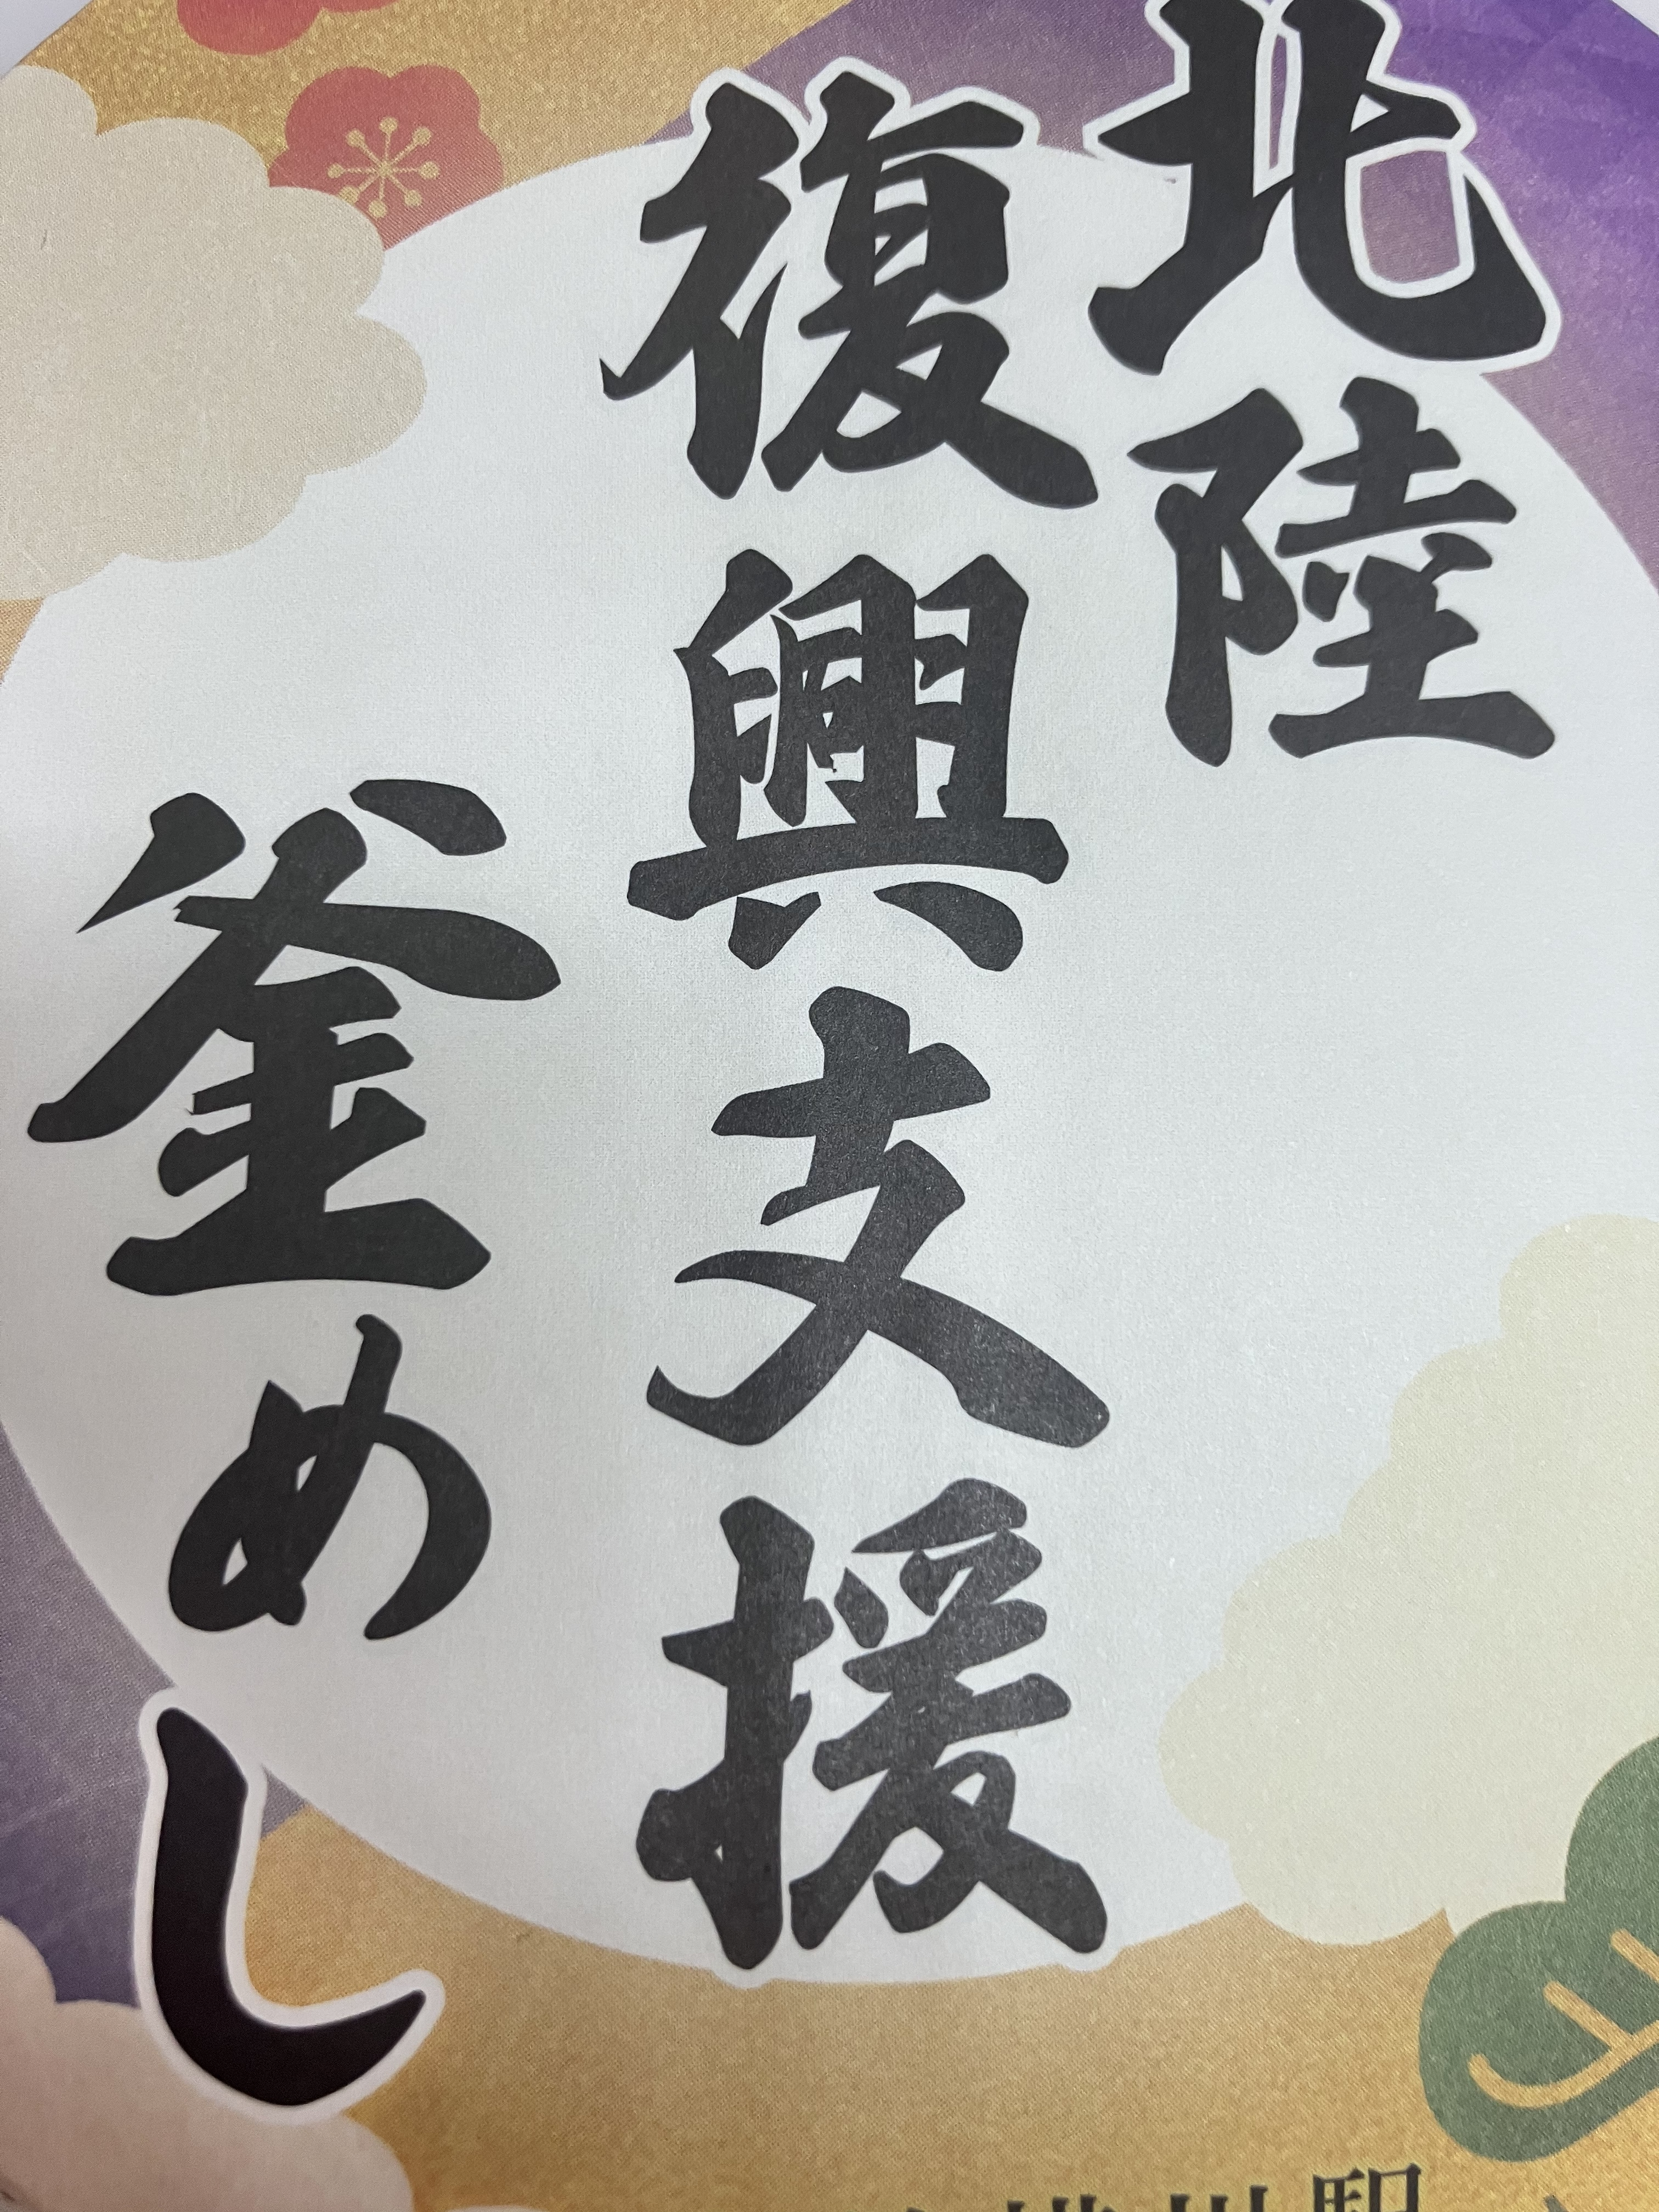 北陸
復興支援
釜めし